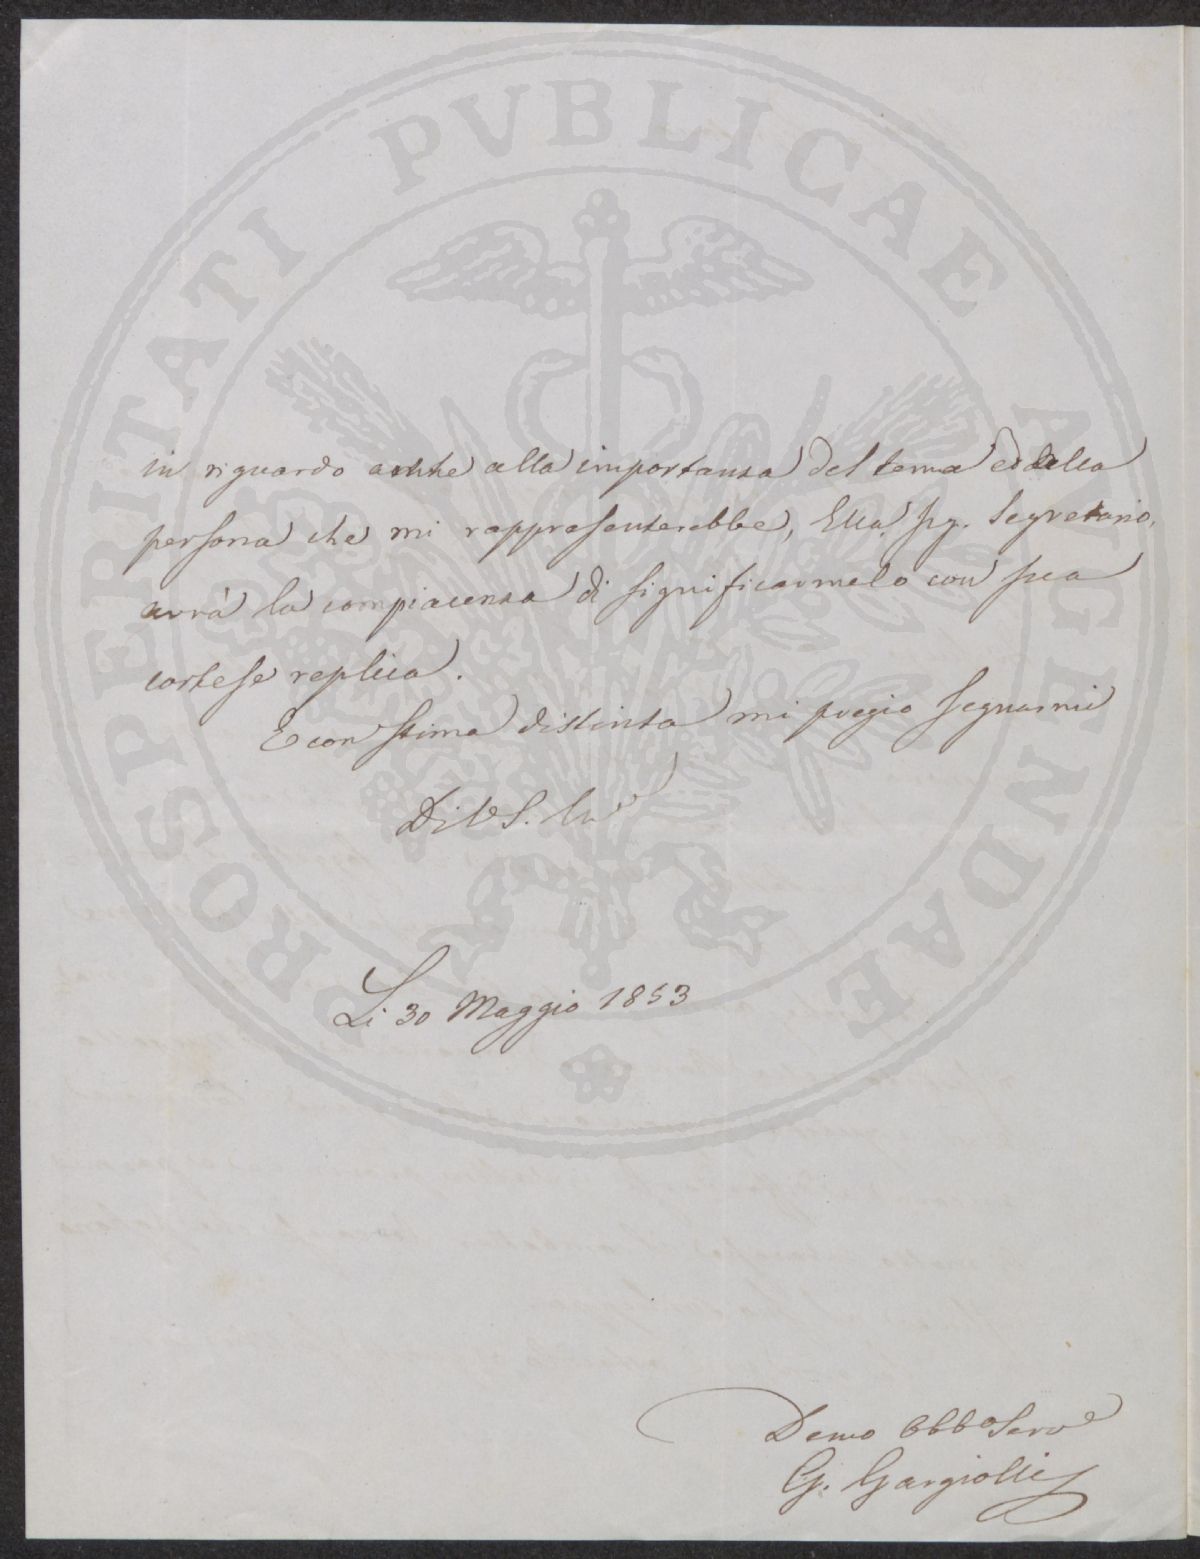 PROSPERITATI PVBLICAE AVGENDAE
in riguardo anche alla importanza del tema e della
persona che mi rappresenterebbe, Ella, Sig. Segretario,
avrà la compiacenza di significarmelo con sua
cortese replica.
E con stima distinta mi pregio segnarmi
Di V S. Ill
Li 30 Maggio 1853
Devmo Obbo Serve
G. Gargiolli